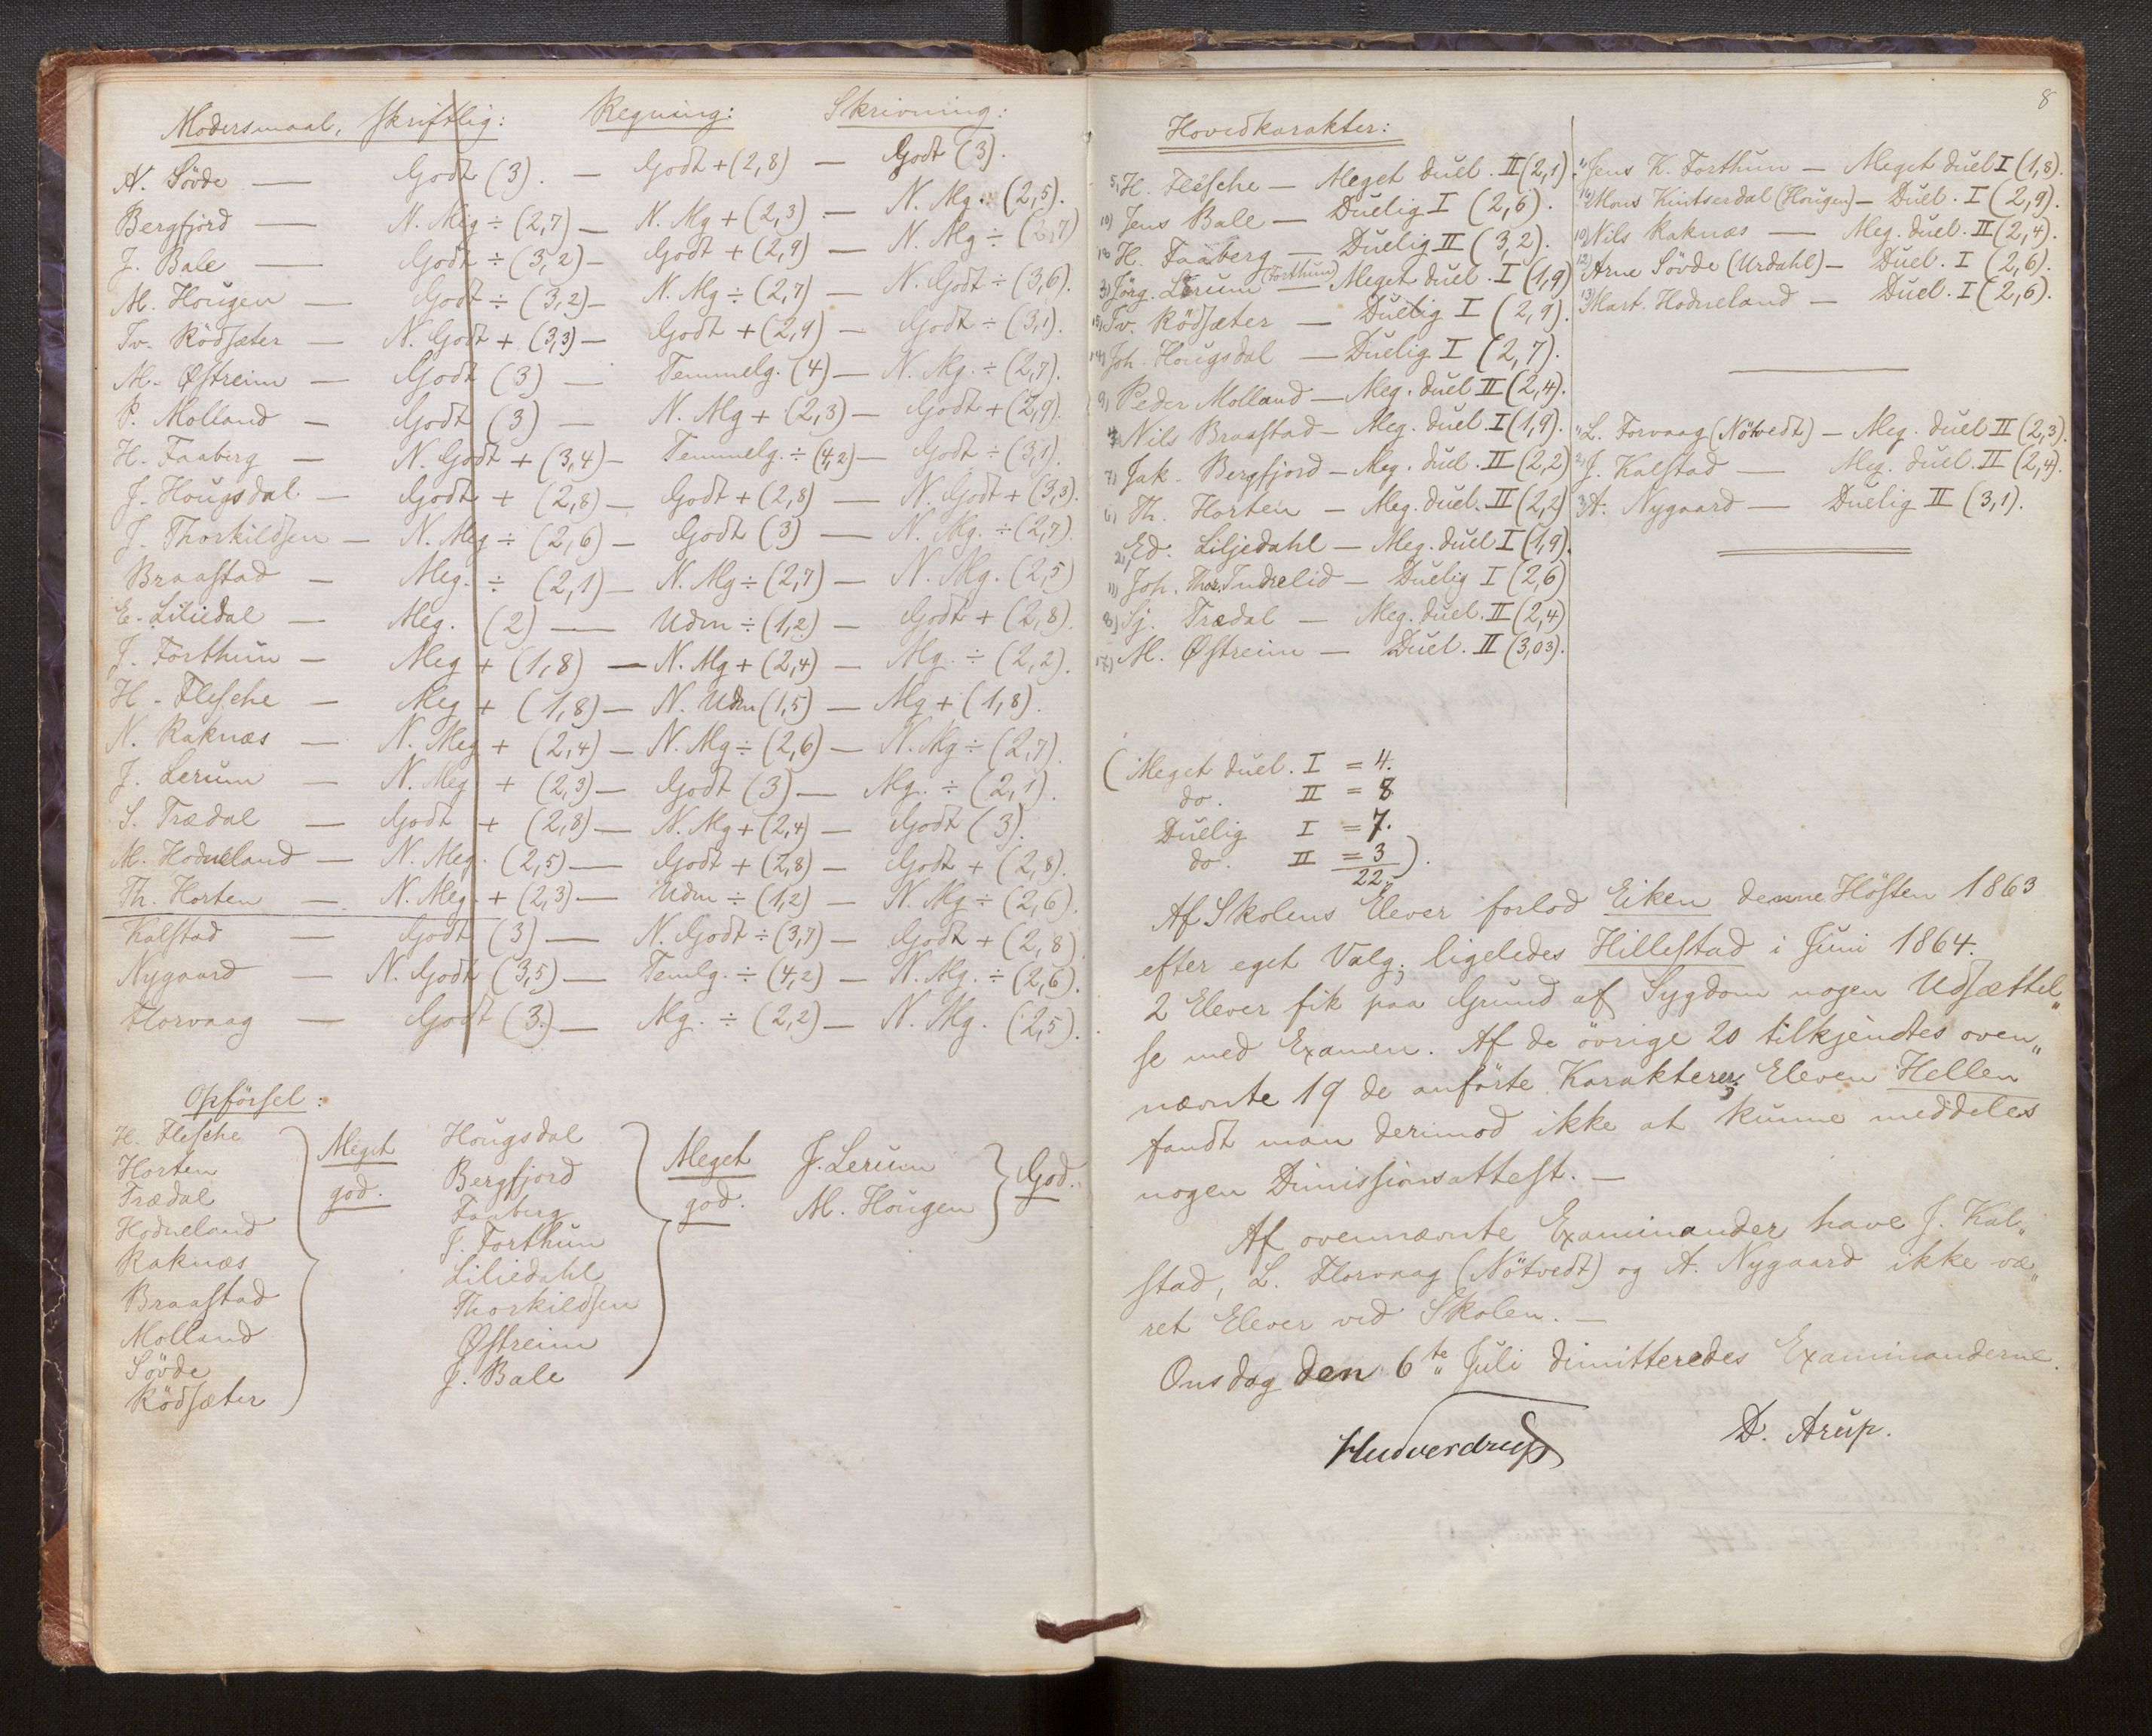 Modersmaal, skriftlig: Regning: Skrivning:
A. Sövde — Godt (3). — Godt + (2,8) — Godt (3).
Bergfjord — N. Meg ÷ (2,7) — N. Mg + (2,3) — N. Mg. (2,5).
J. Bale — Godt ÷ (3,2) — Godt + (2,9) — N. Mg ÷ (2,7)
M. Hougen — Godt ÷ (3,2) — N. Mg ÷ (2,7) — N. Godt ÷ (3,6).
Tv. Rödsæter — N. Godt + (3,3) — Godt + (2,9) — Godt ÷ (3,1).
M. Østreim — Godt (3) — Temmelg. (4) — N. Mg. ÷ (2,7).
P. Molland — Godt (3) — N. Mg + (2,3) — Godt + (2,9).
H. Faaberg — N. Godt + (3,4) — Temmelg. ÷ (4,2) — Godt ÷ (3,1).
J. Hougsdal — Godt + (2,8) — Godt + (2,8) — N. Godt + (3,3).
J. Thorkildsen — N. Meg ÷ (2,6) — Godt (3) — N. Mg. ÷ (2,7).
Braastad — Meg. ÷ (2,1) — N. Mg ÷ (2,7) — N. Mg. (2,5)
E. Liliedal — Meg. (2) — Udm ÷ (1,2) — Godt + (2,8).
J. Forthun — Meg + (1,8) — N. Mg + (2,4) — Mg. ÷ (2,2).
H. Flesche — Meg + (1,8) — N. Udm (1,5) — Mg + (1,8).
N. Raknæs — N. Meg + (2,4) — N. Mg ÷ (2,6) — N. Mg ÷ (2,7).
J. Lerum — N. Meg + (2,3) — Godt (3) — Mg. ÷ (2,1).
S. Trædal — Godt + (2,8) — N. Mg + (2,4) — Godt (3).
M. Hodneland — N. Meg. (2,5) — Godt + (2,8) — Godt + (2,8).
Th. Horten — N. Meg. + (2,3) — Udm ÷ (1,2) — N. Mg ÷ (2,6).
Kalstad — Godt (3) — N. Godt ÷ (3,7) — Godt + (2,8)
Nygaard — N. Godt (3,5) — Temlg. ÷ (4,2) — N. Mg. ÷ (2,6).
Florvaag — Godt (3.) — Mg. ÷ (2,2) — N. Mg. (2,5).
Opförsel:
H. Flesche
Horten
Trædal
Hodneland
Raknæs
Braastad
Molland
Sövde
Rödsæter
Meget
god.
Hougsdal
Bergfjord
Faaberg
J. Forthun
Liliedahl
Thorkildsen
Østreim
J. Bale
Meget
god.
J. Lerum
M. Hougen
God.
8
Hovedkarakter:
5, H. Flesche — Meget duel. II (2,1).
10) Jens Bale — Duelig I (2,6).
18 H. Faaberg — Duelig II (3,2).
3) Jörg. Lerum (Forthun) — Meget duel. I (1,9)
15) Tv. Rödsæter — Duelig I (2,9).
14) Joh. Hougsdal — Duelig I (2,7).
9) Peder Molland — Meg. duel II (2,4).
4 Nils Braastad — Meg. duel. I (1,9).
7) Jak. Bergfjord — Meg. duel. II (2,2)
6) Th. Horten — Meg. duel. II (2,2)
2, Ed. Liljedahl — Meg. duel I (1,9).
11) Joh. Thor. Indrelid — Duelig I (2,6)
8) Sj. Trædal — Meg. duel. II (2,4)
17) M. Østreim — Duel. II (3,03).
1) Jens K. Forthun — Meget duel I (1,8).
16) Mons Kintserdal (Hougen) — Duel. I (2,9).
10) Nils Raknæs — Meg. duel. II (2,4).
12) Arne Sövde (Urdahl) — Duel. I (2,6).
13) Mart. Hodneland — Duel. I (2,6).
1) L. Forvaag (Nötvedt) — Meg. duel II (2,3).
2) J. Kalstad — Meg. duel. II (2,4).
3) A. Nygaard — Duelig II (3,1).
(Meget duel. I = 4.
do. II = 8
Duelig I = 7.
do. II = 3).
22.
Af Skolens Elever forlod Eiken denne Hösten 1863
efter eget Valg; ligeledes Hillestad i Juni 1864.
2 Elever fik paa Grund af Sygdom nogen Udsættel„
se med Examen. Af de övrige 20 tilkjendtes oven„
nævnte 19 de anförte Karakterer; Eleven Hellen
fandt man derimod ikke at kunne meddeles
nogen Dimissionsattest. —
Af ovennævnte Examinander have J. Kal„
stad, L. Florvaag (Nötvedt) og A. Nygaard ikke væ„
ret Elever ved Skolen. —
Onsdag den 6te Juli dimitteredes Examinanderne.
D. Arup.